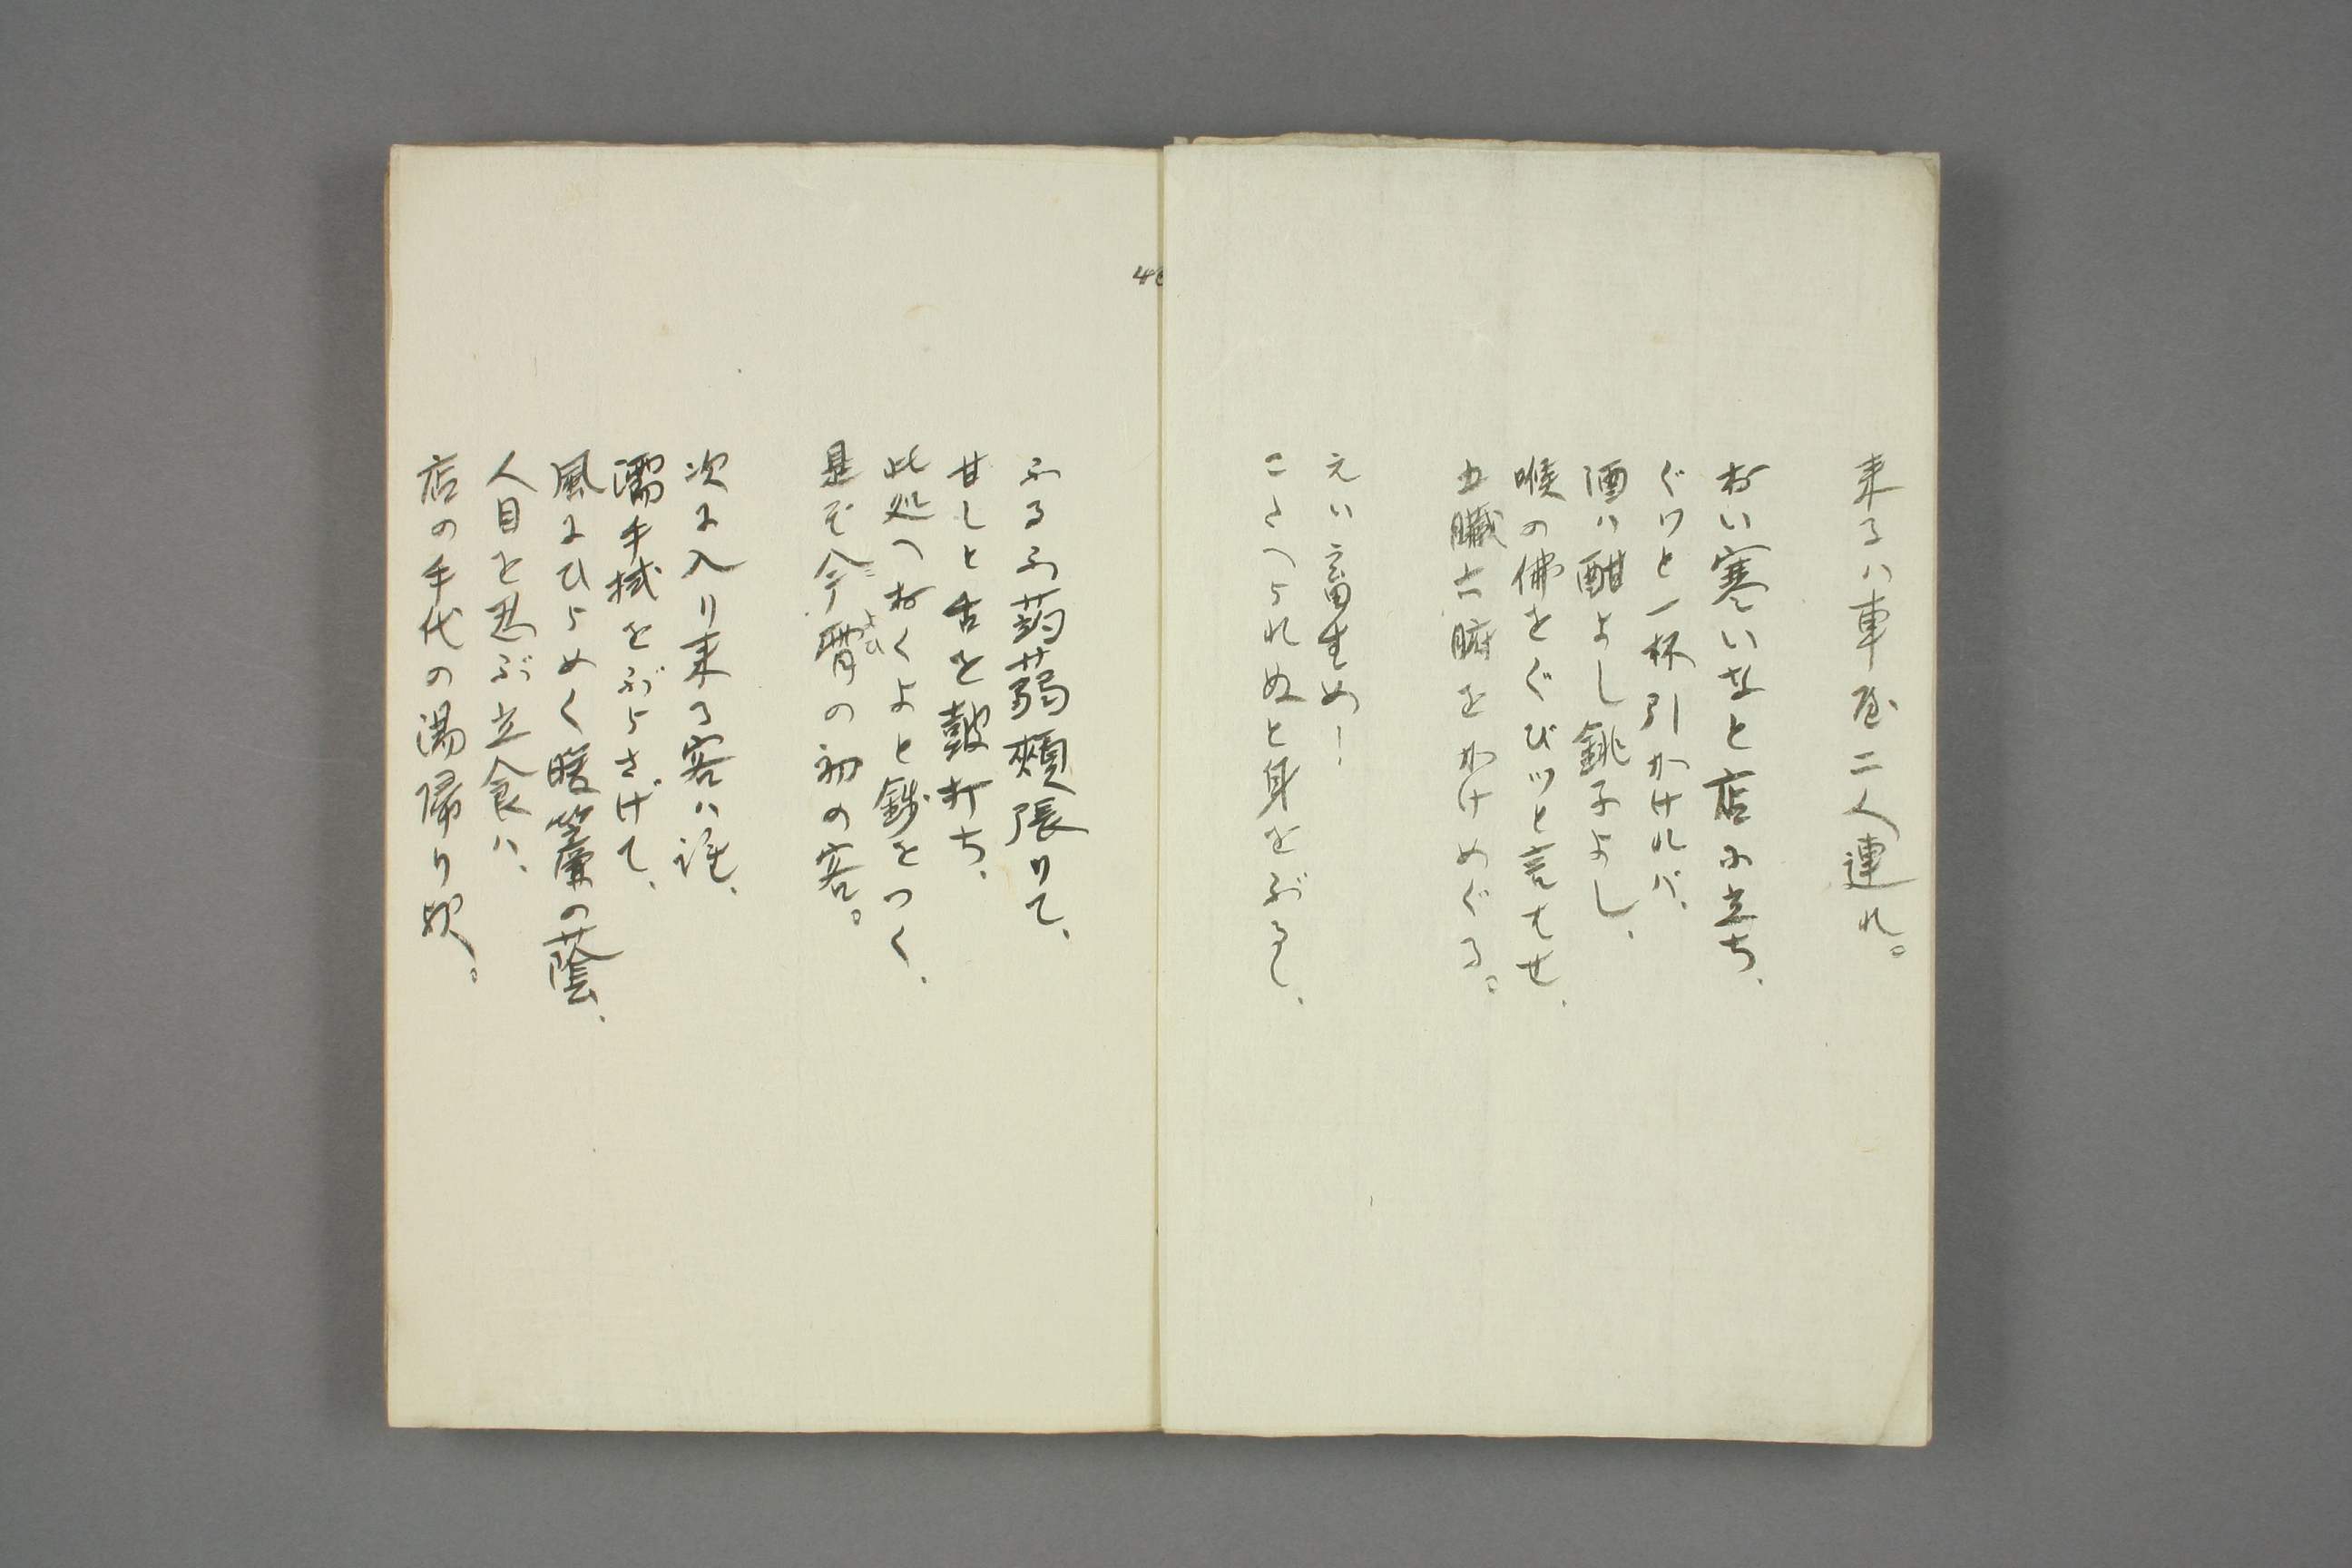 来るハ車屋二人連れ。
おい寒いなと店に立ち、
ぐツと一杯引かけれバ、
酒ハ酣よし銚子よし、
喉の佛をぐびツと言はせ、
五臓六腑をかけめぐる。
えい畜生め！
こたへられぬと身をぶるし、
ふるふ蒟蒻頬張りて、
甘しと舌を皷打ち、
此処へおくよと銭をつく、
是ぞ今宵の初の客。
こよひ
次に入り来る客ハ誰、
濡手拭をぶらさげて、
風にひらめく暖簾の蔭、
人目を忍ぶ立食ハ、
店の手代の湯帰り歟。